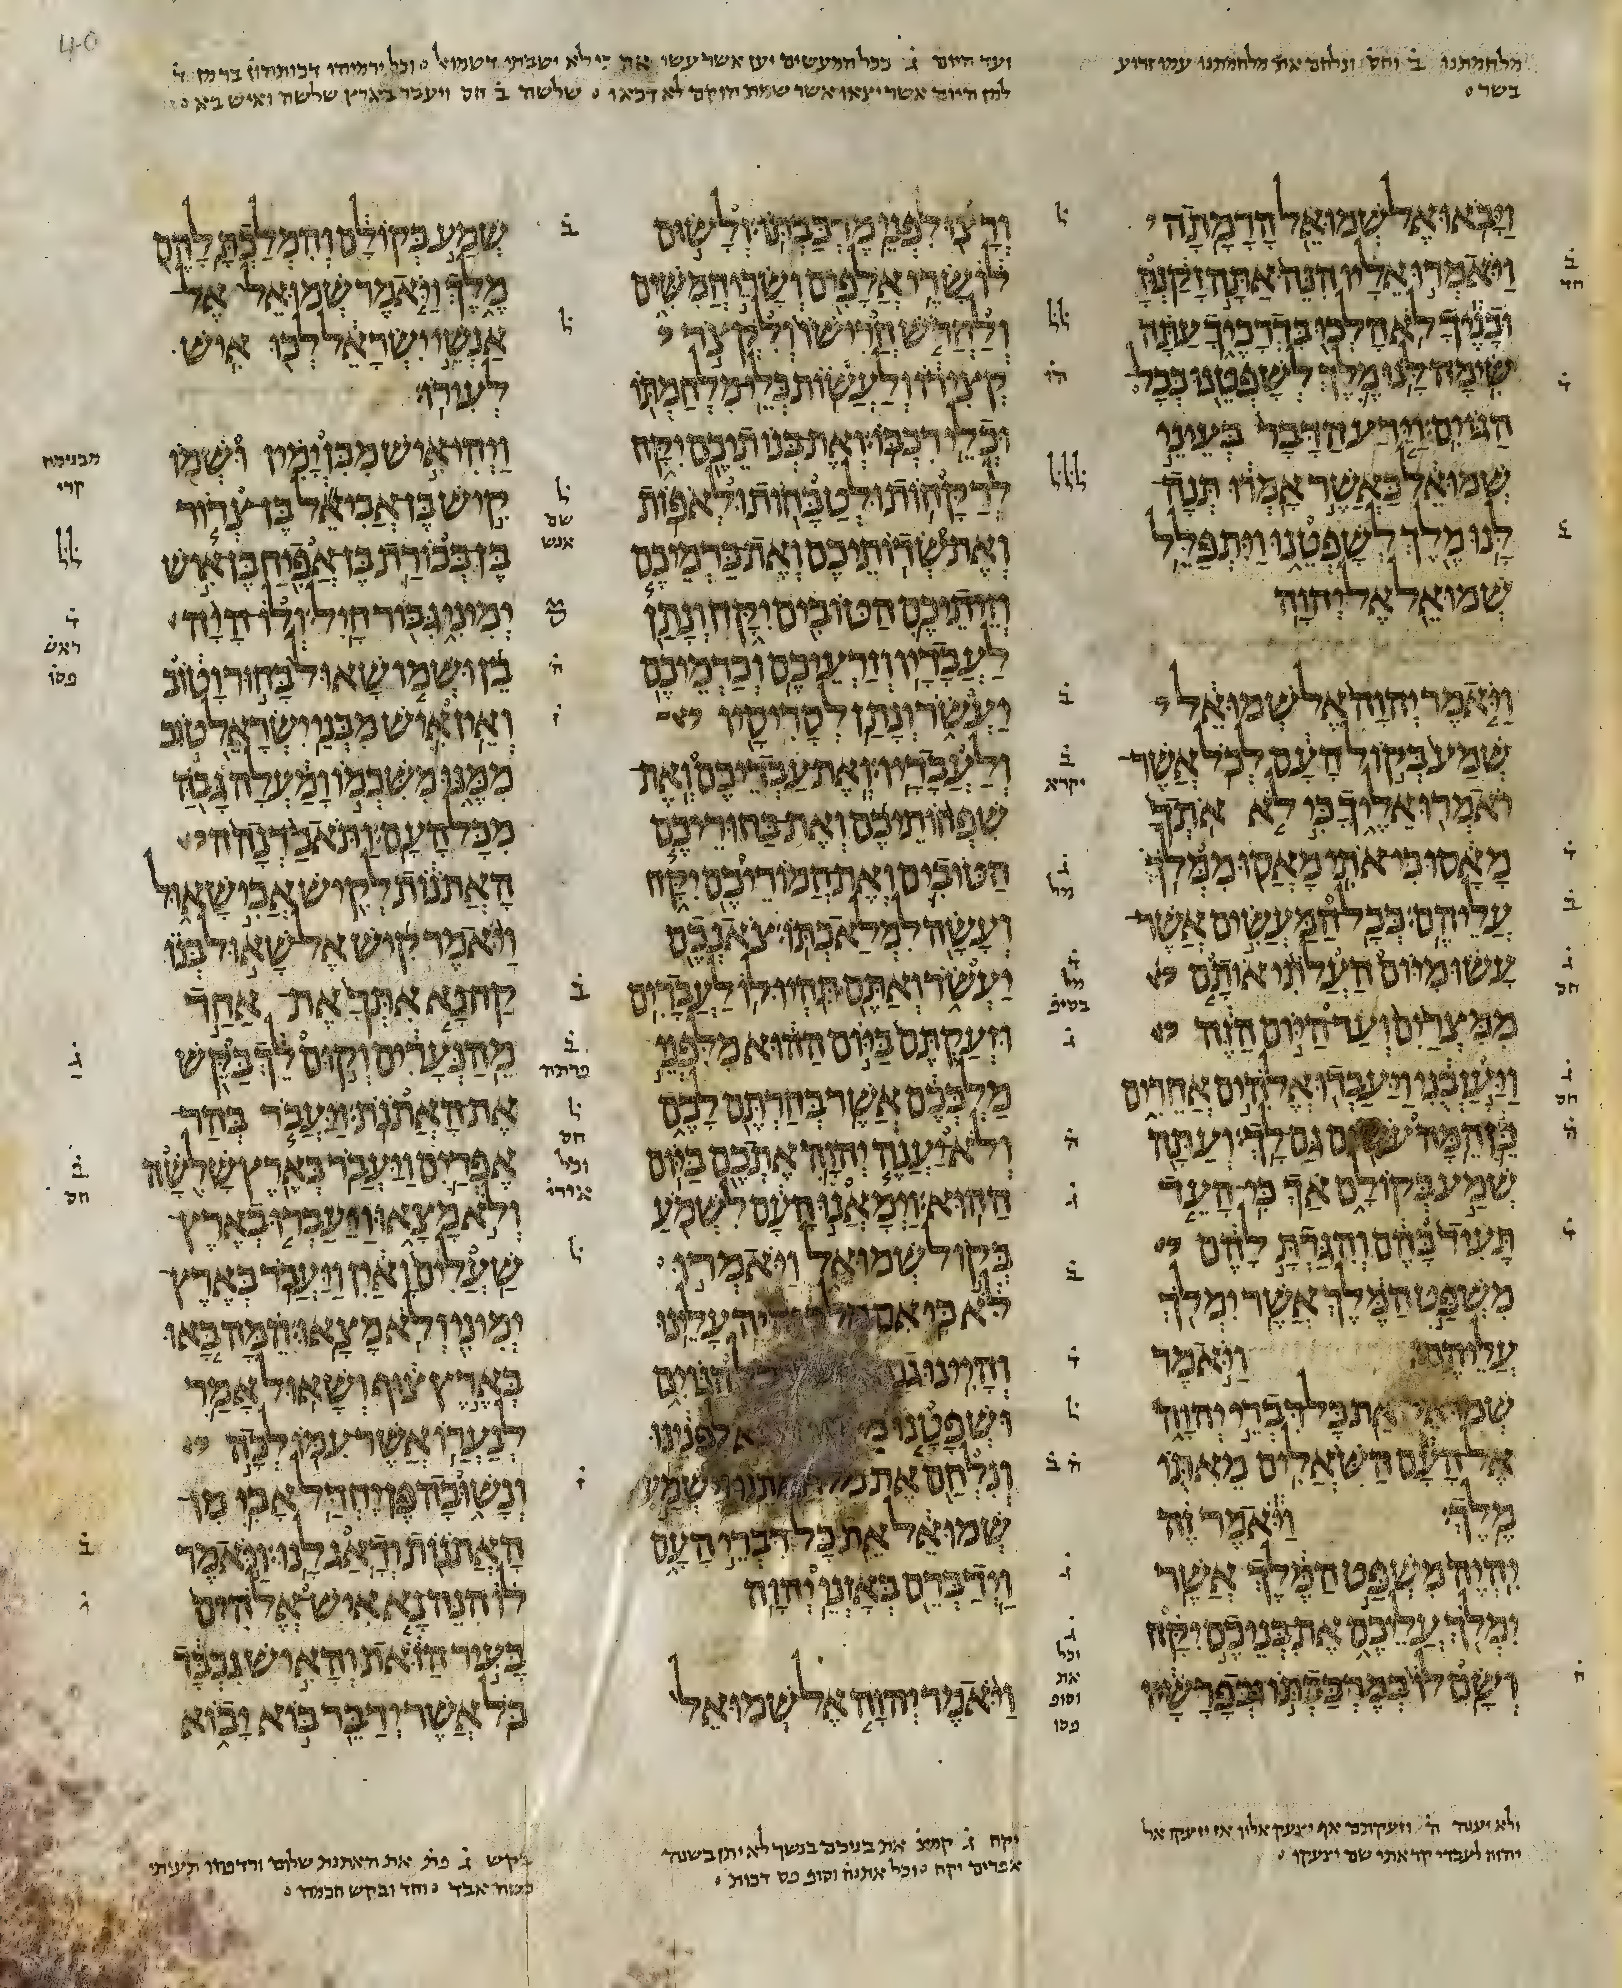 מלחמתנו ב̇ וחס̇ ונלחם את מלחמתנו עמו זרוע
בשר
ועד היום ג̇ ככל המעשים יען אשר עשו את כי לא ישבתי דשמואל וכל ירמיהו דכותהון בר מן ד̇
למן היום אשר יצאו אשר שמת הוקם לא דכאו שלשה ב̇ חס ויעבר בארץ שלשה ואיש בא
ויבאו אל שמואל הרמתה
ויאמרו אליו הנה אתה זקנת
ובניך לא הלכו בדרכיך עתה
שימה לנו מלך לשפטנו ככל
הגוים וירע הדבר בעיני
שמואל כאשר אמרו תנה
לנו מלך לשפטנו ויתפלל
שמואל אל יהוה
ויאמר יהוה אל שמואל
שמע בקול העם לכל אשר
יאמרו אליך כי לא אתך
מאסו כי אתי מאסו ממלך
עליהם ככל המעשים אשר
עשו מיום העלתי אותם
ממצרים ועד היום הזה
ויעזבני ויעבדו אלהים אחרים
כן המה עשים גם לך ועתה
שמע בקולם אך כי העד
תעיד בהם והגדת להם
משפט המלך אשר ימלך
עליהם ויאמר
שמואל את כל דברי יהוה
אל העם השאלים מאתו
מלך ויאמר זה
יהיה משפט המלך אשר
ימלך עליכם את בניכם יקח
ושם לו במרכבתו ובפרשיו
ורצו לפני מרכבתו ולשום
לו שרי אלפים ושרי חמשים
ולחרש חרישו ולקצר
קצירו ולעשות כלי מלחמתו
וכלי רכבו ואת בנותיכם יקח
לרקחות ולטבחות ולאפות
ואת שדותיכם ואת כרמיכם
וזיתיכם הטובים יקח ונתן
לעבדיו וזרעיכם וכרמיכם
יעשר ונתן לסריסיו
ולעבדיו ואת עבדיכם ואת
שפחותיכם ואת בחוריכם
הטובים ואת חמוריכם יקח
ועשה למלאכתו צאנכם
יעשר ואתם תהיו לו לעבדים
וזעקתם ביום ההוא מלפני
מלככם אשר בחרתם לכם
ולא יענה יהוה אתכם ביום
ההוא וימאנו העם לשמע
בקול שמואל ויאמרו
לא כי אם מלך יהיה עלינו
והיינו גם הגוים
ושפטנו לפנינו
ונלחם את מלחמתנו וישמע
שמואל את כל דברי העם
וידברם באזני יהוה
ויאמר יהוה אל שמואל
שמע בקולם והמלכת להם
מלך ויאמר שמואל אל
אנשי ישראל לכו איש
לעירו
ויהי איש מבן ימין ושמו
קיש בן אביאל בן צרור
בן בכורת בן אפיח בן איש
ימיני גבור חיל ולו היה
בן ושמו שאול בחור וטוב
ואין איש מבני ישראל טוב
ממנו משכמו ומעלה גבה
מכל העם ותאבדנה
האתנות לקיש אבי שאול
ויאמר קיש אל שאול בנו
קח נא אתך את אחד
מהנערים וקום לך בקש
את האתנת ויעבר בהר
אפרים ויעבר בארץ שלשה
ולא מצאו ויעברו בארץ
שעלים ואין ויעבר בארץ
ימיני ולא מצאו המה באו
בארץ צוף ושאול אמר
לנערו אשר עמו לכה
ונשובה פן יחדל אבי מן
האתנות ודאג לנו ויאמר
לו הנה נא איש אלהים
בעיר הזאת והאיש נכבד
כל אשר ידבר בוא יבוא
ולא יענה ה̇ וזעקתם אף יצעק אליו אז יזעקו אל
יהוה לעבדי קראתי שם יצעקו
יקח ג̇ קמצ̇ את בניכם בנשך לא יתן בשנה
אפרים יקח וכל אתנח וסופ̇ פס̇ דכות̇
בקש ג̇ פת̇ את האתנת שלום ורדפהו תעיתי
כשה אבד וחד ובקש חכמה